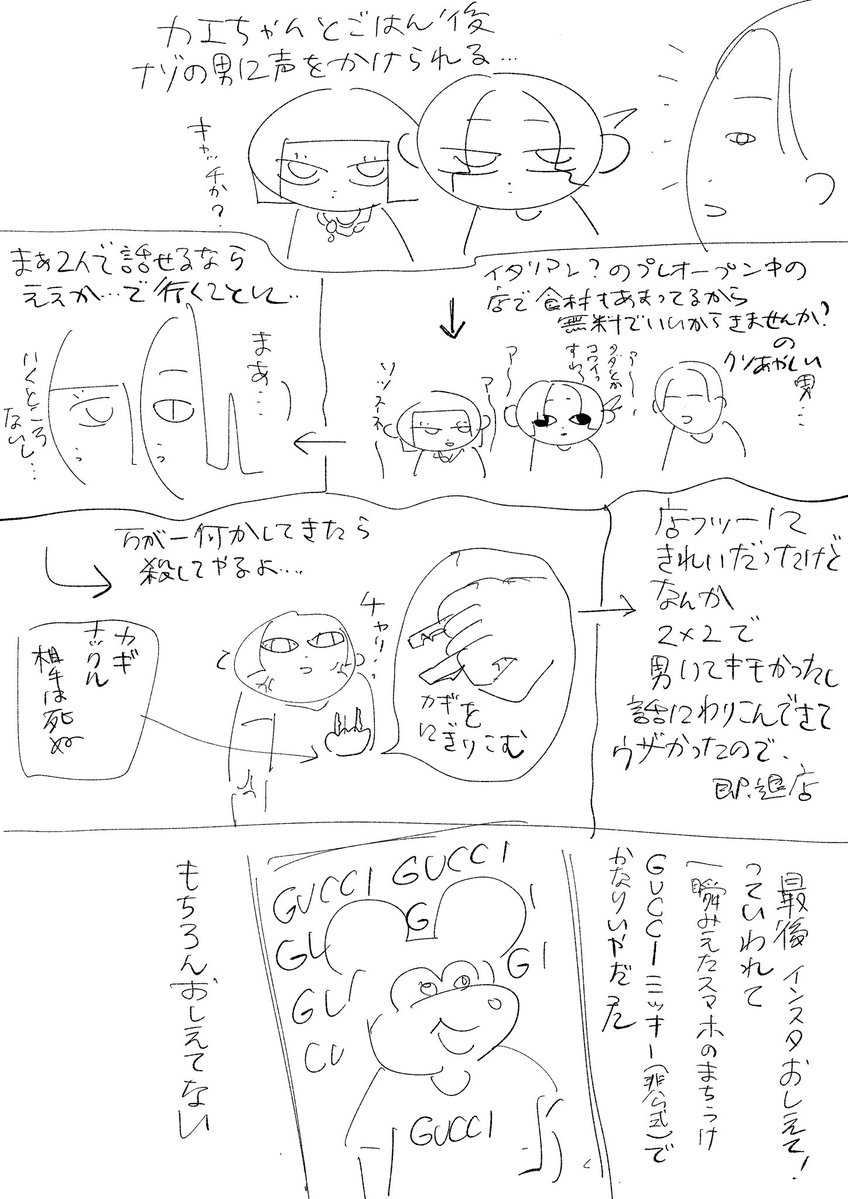 カエちゃんとごはん後
ナゾの男に声をかけられる…
キャッチか?
イタリアン?のプレオープン中の
店で食材もあまってるから
無料でいいからきませんか?
の
クソあやしい
男…
ア〜、
タダとか
コワイっ
すね〜
ア〜
ア〜
ソッスネ
まぁ2人で話せるなら
ええか…で行くことに…
まぁ…
いくところ
ないし…
万が一何かしてきたら
殺してやるよ…
チャリ…
カギを
にぎりこむ
カギ
ナックル
相手は死ぬ
店フツーに
きれいだったけど
なんか
2×2で
男いてキモかったし
話にわりこんできて
ウザかったので、
即退店
最後インスタおしえて!
っていわれて
一瞬みえたスマホのまちうけ
GUCCIミッキー(非公式)で
かなりいやだった
GUCCI GUCCI
GU G I
GU GI
CU
GUCCI
もちろんおしえてない